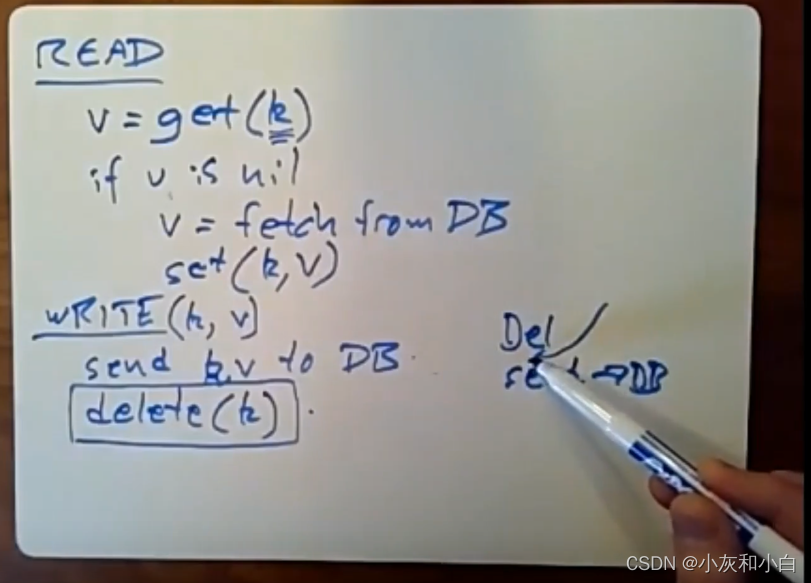 READ
v = get(k)
if v is nil
v = fetch from DB
set(k, v)
WRITE(k, v)
send k,v to DB
delete(k)
Del
send → DB
CSDN @小灰和小白